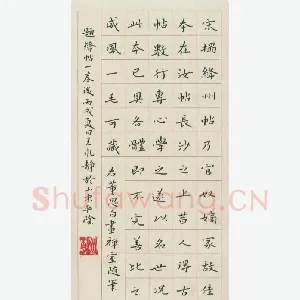 宋搨絳州帖乃官奴嫡家故佳
本在汝帖長沙之上昔人得古
帖數行專心學之遂以名世況
此本已具各體即不完善比之
威鳳一毛可藏 右董思白畫禪室隨筆
題絳帖一卷後丙戌夏日吳永靜於山東平陰
Shufawang.CN